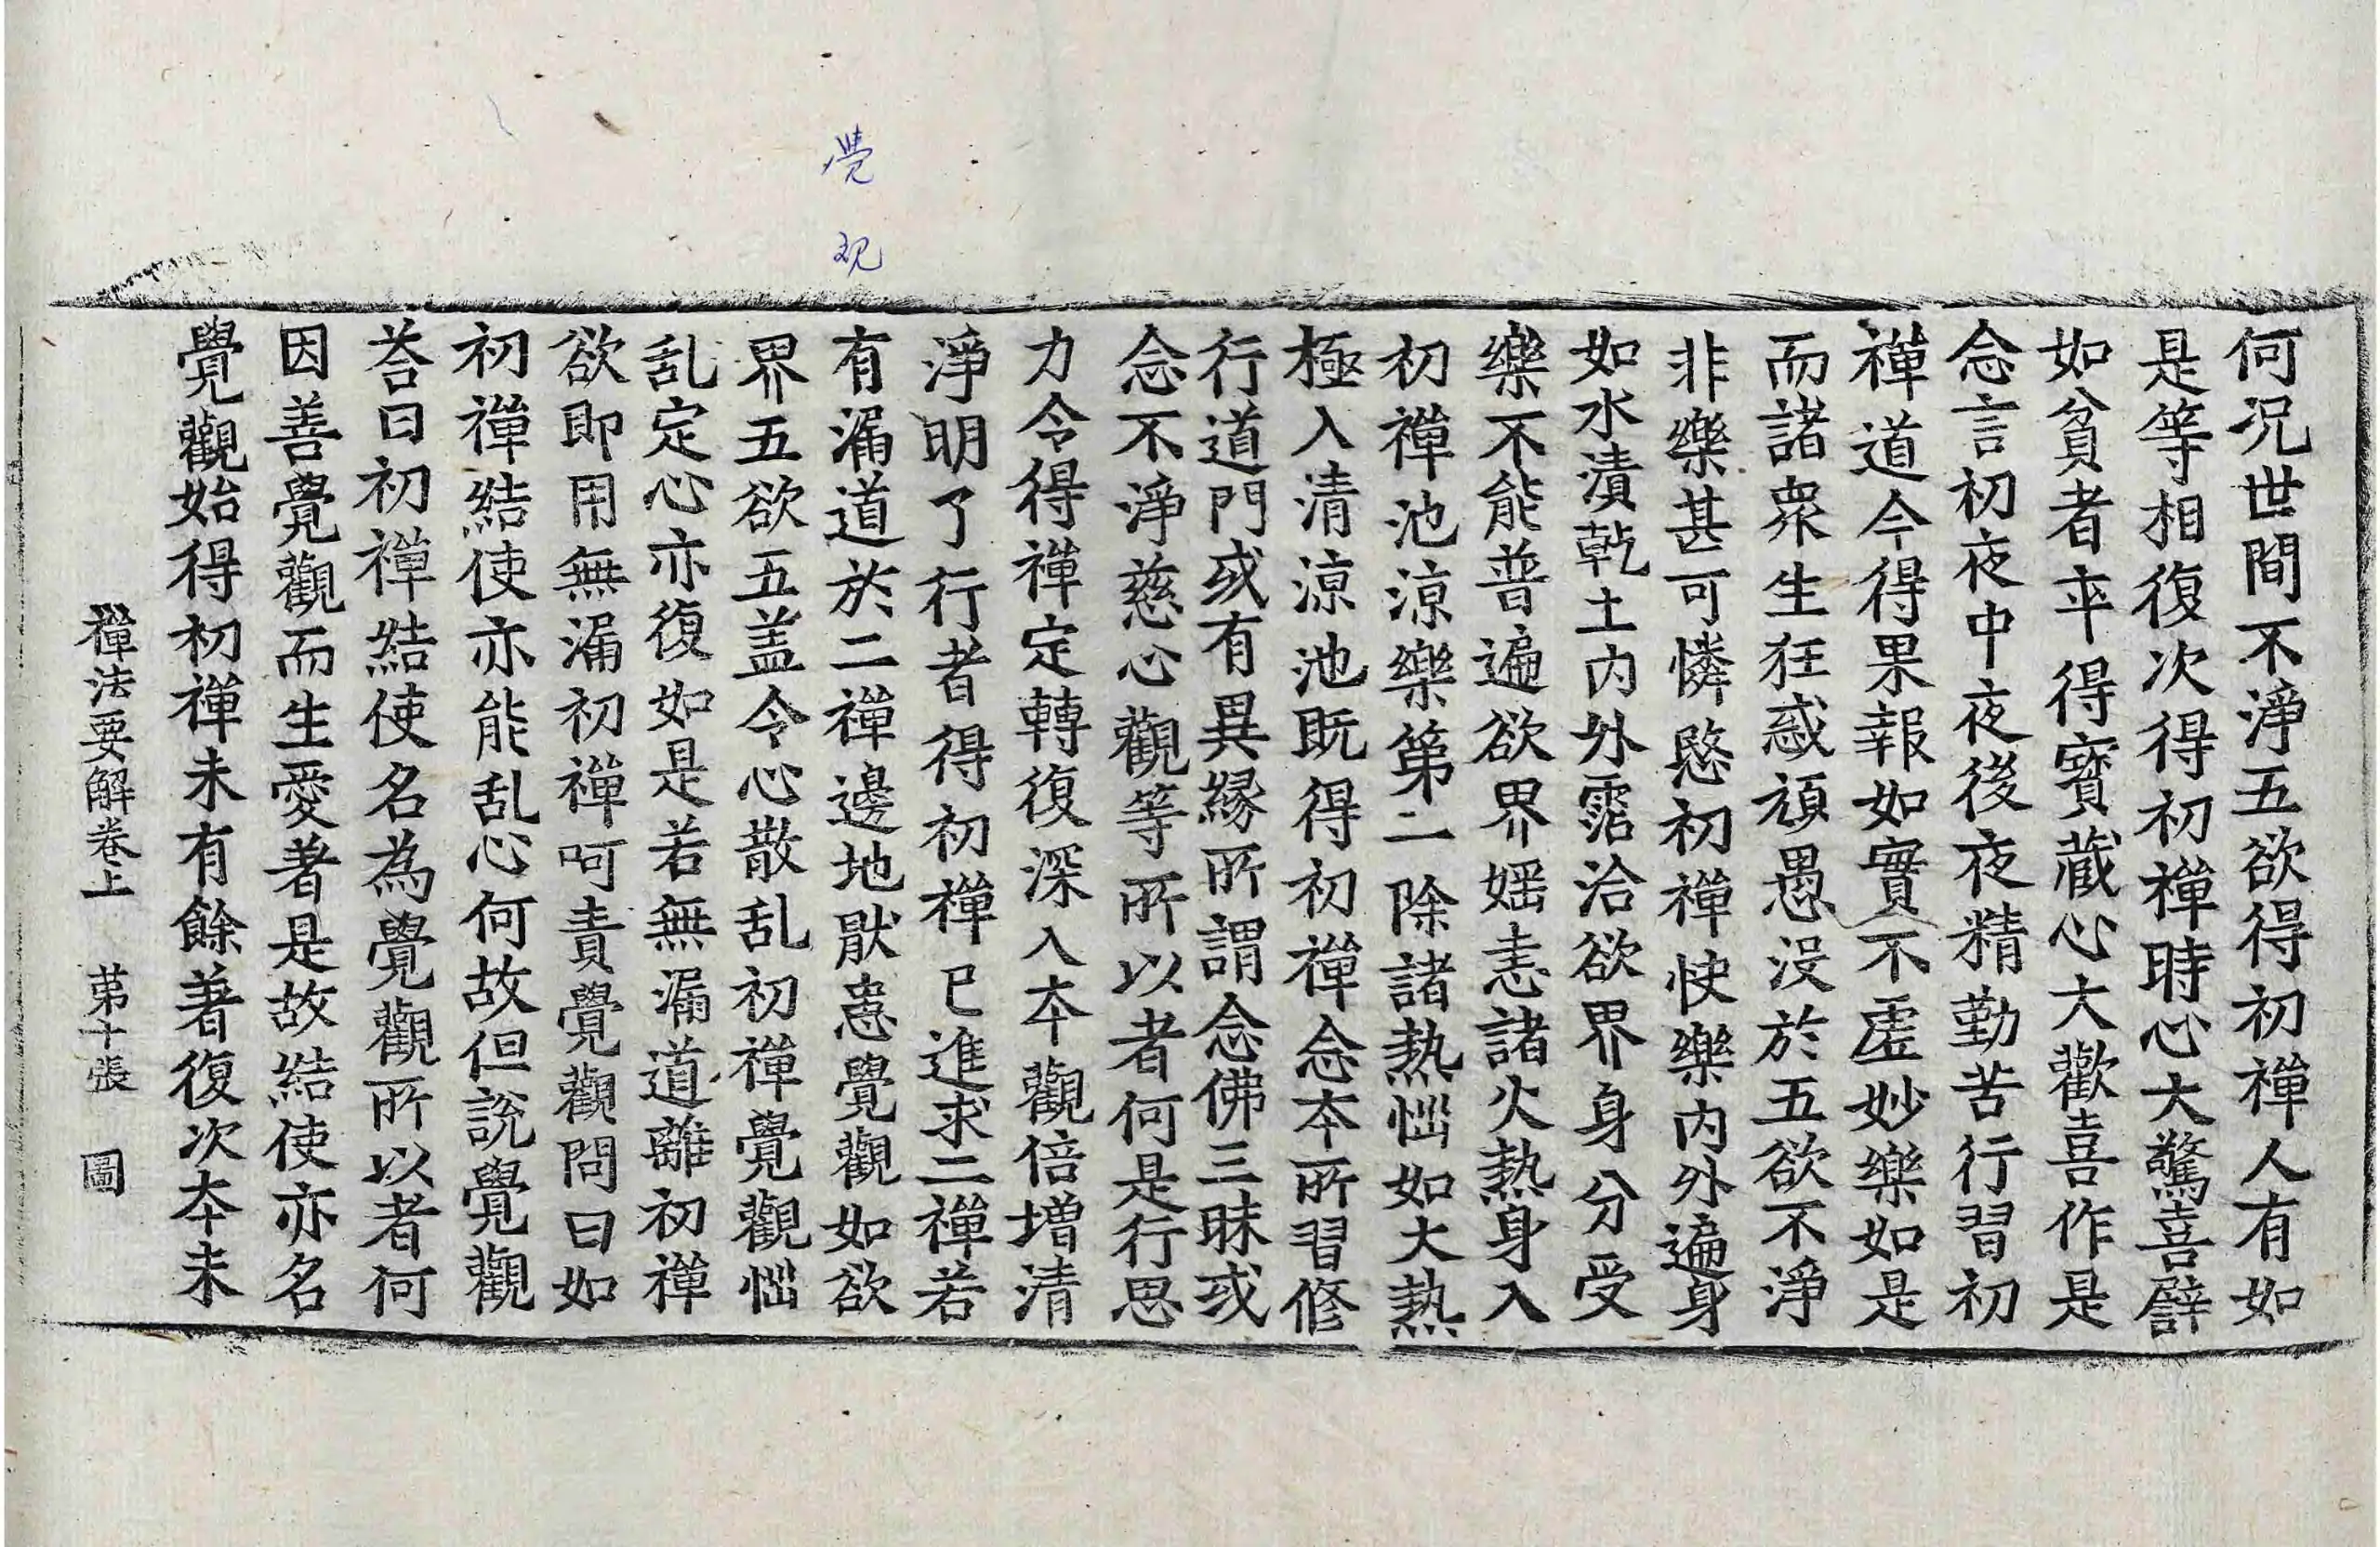 覺
观
何況世間不淨五欲得初禪人有如
是等相復次得初禪時心大驚喜譬
如貧者卒得寶藏心大歡喜作是
念言初夜中夜後夜精勤苦行習初
禪道今得果報如實不虛妙樂如是
而諸衆生狂惑頑愚没於五欲不淨
非樂甚可憐愍初禪快樂內外遍身
如水漬乾土內外霑洽欲界身分受
樂不能普遍欲界婬恚諸火熱身入
初禪池涼樂第二除諸熱惱如大熱
極入清涼池既得初禪念本所習修
行道門或有異緣所謂念佛三昧或
念不淨慈心觀等所以者何是行思
力令得禪定轉復深入本觀倍增清
淨明了行者得初禪已進求二禪若
有漏道於二禪邊地猒患覺觀如欲
界五欲五盖令心散乱初禪覺觀惱
乱定心亦復如是若無漏道離初禪
欲即用無漏初禪呵責覺觀問曰如
初禪結使亦能乱心何故但說覺觀
荅曰初禪結使名為覺觀所以者何
因善覺觀而生愛著是故結使亦名
覺觀始得初禪未有餘著復次本未
禪法要解卷上　苐十張　圖